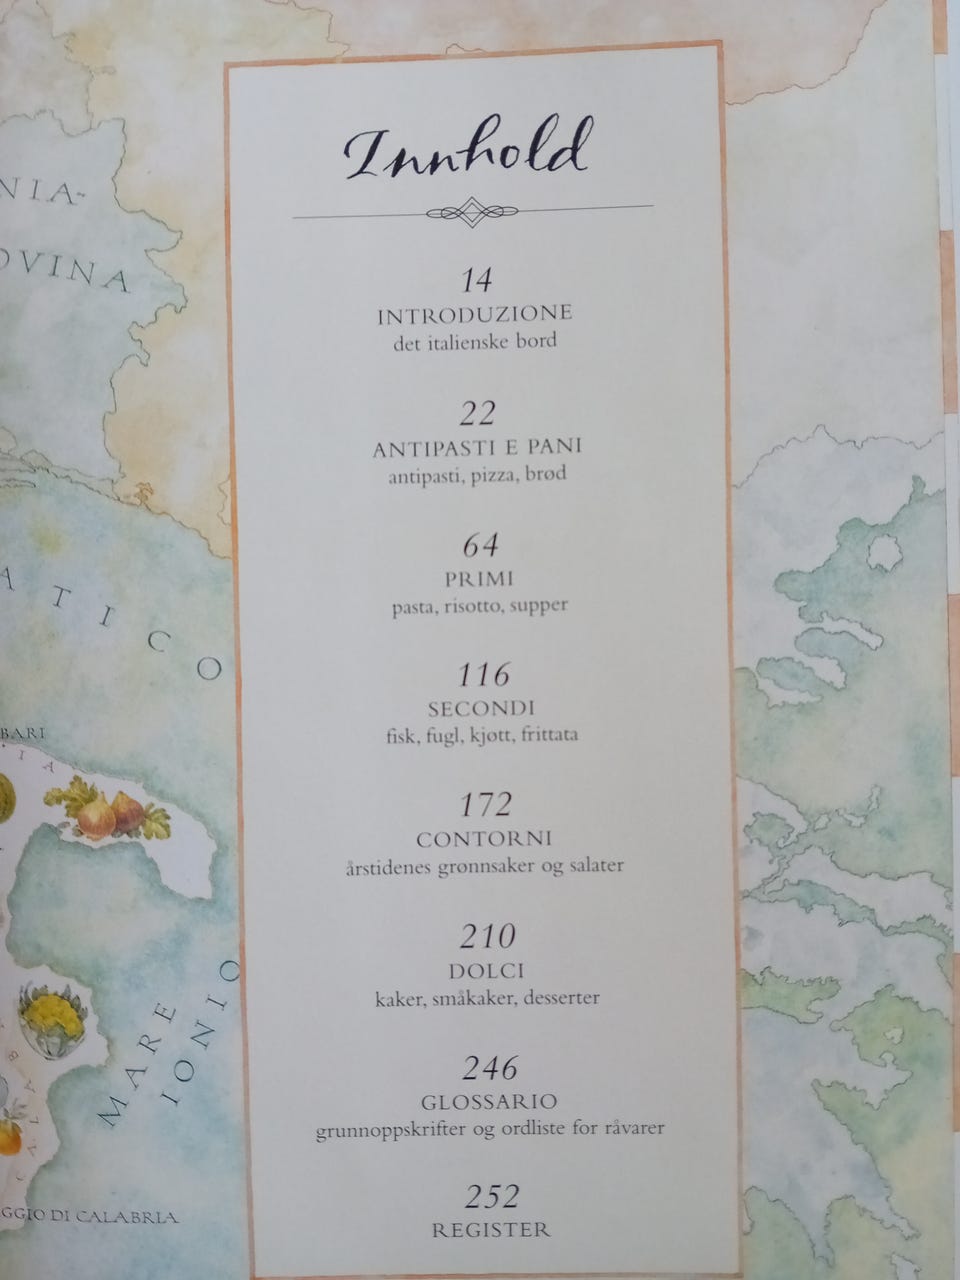 Innhold
14
INTRODUZIONE
det italienske bord
22
ANTIPASTI E PANI
antipasti, pizza, brød
64
PRIMI
pasta, risotto, supper
116
SECONDI
fisk, fugl, kjøtt, frittata
172
CONTORNI
årstidenes grønnsaker og salater
210
DOLCI
kaker, småkaker, desserter
246
GLOSSARIO
grunnoppskrifter og ordliste for råvarer
252
REGISTER
NIA-
OVINA
ATICO
BARI
IA
MARE
IONIO
CALAB
GGIO DI CALABRIA